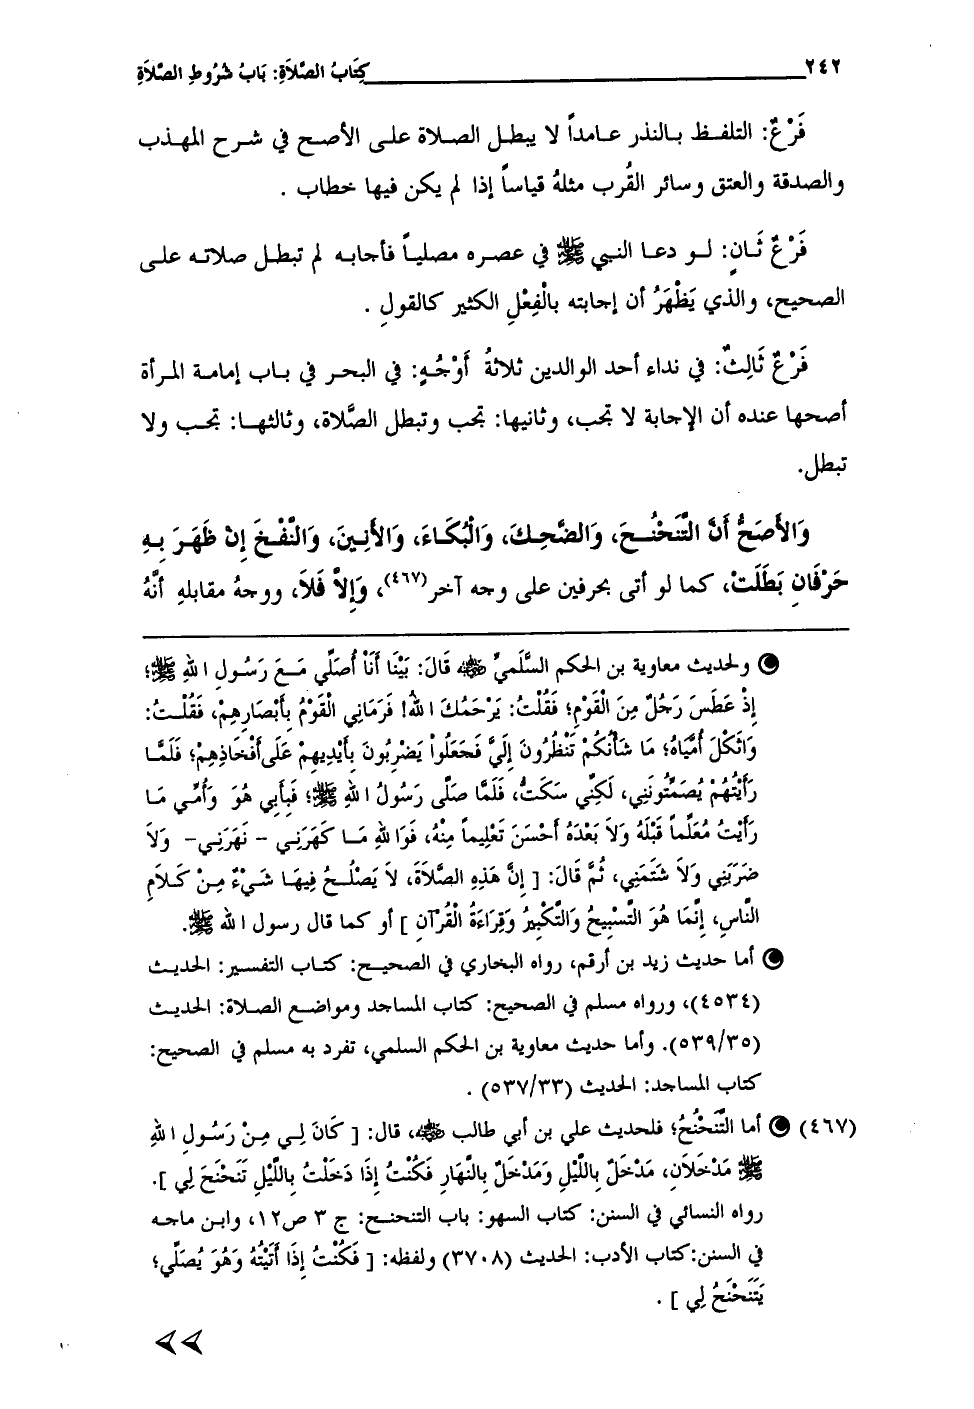 ٢٤٢ كِتَابُ الصَّلاَةِ: بَابُ شُرُوطِ الصَّلاَةِ
فَرْعٌ: التلفظ بالنذر عامداً لا يبطل الصلاة على الأصح في شرح المهذب
والصدقة والعتق وسائر القُرب مثلهُ قياساً إذا لم يكن فيها خطاب .
فَرْعٌ ثَانٍ: لو دعا النبي ﷺ في عصره مصلياً فأجابه لم تبطل صلاته على
الصحيح، والذي يَظْهَرُ أن إجابته بالْفِعْلِ الكثير كالقولِ .
فَرْعٌ ثَالِثٌ: في نداء أحد الوالدين ثلاثةُ أَوْجُهٍ: في البحر في باب إمامة المرأة
أصحها عنده أن الإجابة لا تجب، وثانيها: تجب وتبطل الصَّلاة، وثالثها: تجب ولا
تبطل.
وَالأَصَحُّ أَنَّ التَّنَحْنُحَ، وَالضَّحِكَ، وَالْبُكَاءَ، وَالأَنِينَ، وَالنَّفْخَ إِنْ ظَهَرَ بِهِ
حَرْفَانِ بَطَلَتْ، كما لو أتى بحرفين على وجه آخر(٤٦٧)، وَإِلاَّ فَلاَ، ووجهُ مقابلهِ أنَّهُ
ولحديث معاوية بن الحكم السَّلَميِّ ﷺ قَالَ: بَيْنَا أَنَا أُصَلِّي مَعَ رَسُولِ اللهِ ﷺ؛
إِذْ عَطَسَ رَجُلٌ مِنَ الْقَوْمِ؛ فَقُلْتُ: يَرْحَمُكَ اللهُ! فَرَمَانِي الْقَوْمُ بِأَبْصَارِهِمْ، فَقُلْتُ:
وَاثكْلَ أُمِّيَاهُ؛ مَا شَأْنُكُمْ تَنْظُرُونَ إِلَيَّ فَجَعَلُواْ يَضْرِبُونَ بِأَيْدِيهِمْ عَلَى أَفْخَاذِهِمْ؛ فَلَمَّا
رَأَيْتُهُمْ يُصَمِّتُونَنِي، لَكِنِّي سَكَتُّ، فَلَمَّا صَلَّى رَسُولُ اللهِ ﷺ؛ فَبِأَبِي هُوَ وَأُمِّي مَا
رَأَيْتُ مُعَلِّماً قَبْلَهُ وَلاَ بَعْدَهُ أَحْسَنَ تَعْلِيماً مِنْهُ، فَوَاللهِ مَا كَهَرَنِي - نَهَرَنِي- وَلاَ
ضَرَبَنِي وَلاَ شَتَمَنِي، ثُمَّ قَالَ: [ إِنَّ هَذِهِ الصَّلاَةَ، لاَ يَصْلُحُ فِيهَا شَيْءٌ مِنْ كَلاَمِ
النَّاسِ، إِنَّمَا هُوَ التَّسْبِيحُ وَالتَّكْبِيرُ وَقِرَاءَةُ الْقُرْآنِ ] أو كما قال رسول الله ﷺ.
أما حديث زيد بن أرقم، رواه البخاري في الصحيح: كتاب التفسير: الحديث
(٤٥٣٤)، ورواه مسلم في الصحيح: كتاب المساجد ومواضع الصلاة: الحديث
(٥٣٩/٣٥). وأما حديث معاوية بن الحكم السلمي، تفرد به مسلم في الصحيح:
كتاب المساجد: الحديث (٥٣٧/٣٣) .
(٤٦٧) أما التَّنَحْنُحُ؛ فلحديث علي بن أبي طالب ﷺ، قال: [ كَانَ لِي مِنْ رَسُولِ اللهِ
ﷺ مَدْخَلاَنِ، مَدْخَلٌ بِاللَّيْلِ وَمَدْخَلٌ بِالنَّهَارِ فَكُنْتُ إِذَا دَخَلْتُ بِاللَّيْلِ تَنَحْنَحَ لِي ].
رواه النسائي في السنن: كتاب السهو: باب التنحنح: ج ٣ ص١٢، وابن ماجه
في السنن:كتاب الأدب: الحديث (٣٧٠٨) ولفظه: [ فَكُنْتُ إِذَا أَتَيْتُهُ وَهُوَ يُصَلِّي؛
يَتَنَحْنَحُ لِي ] .